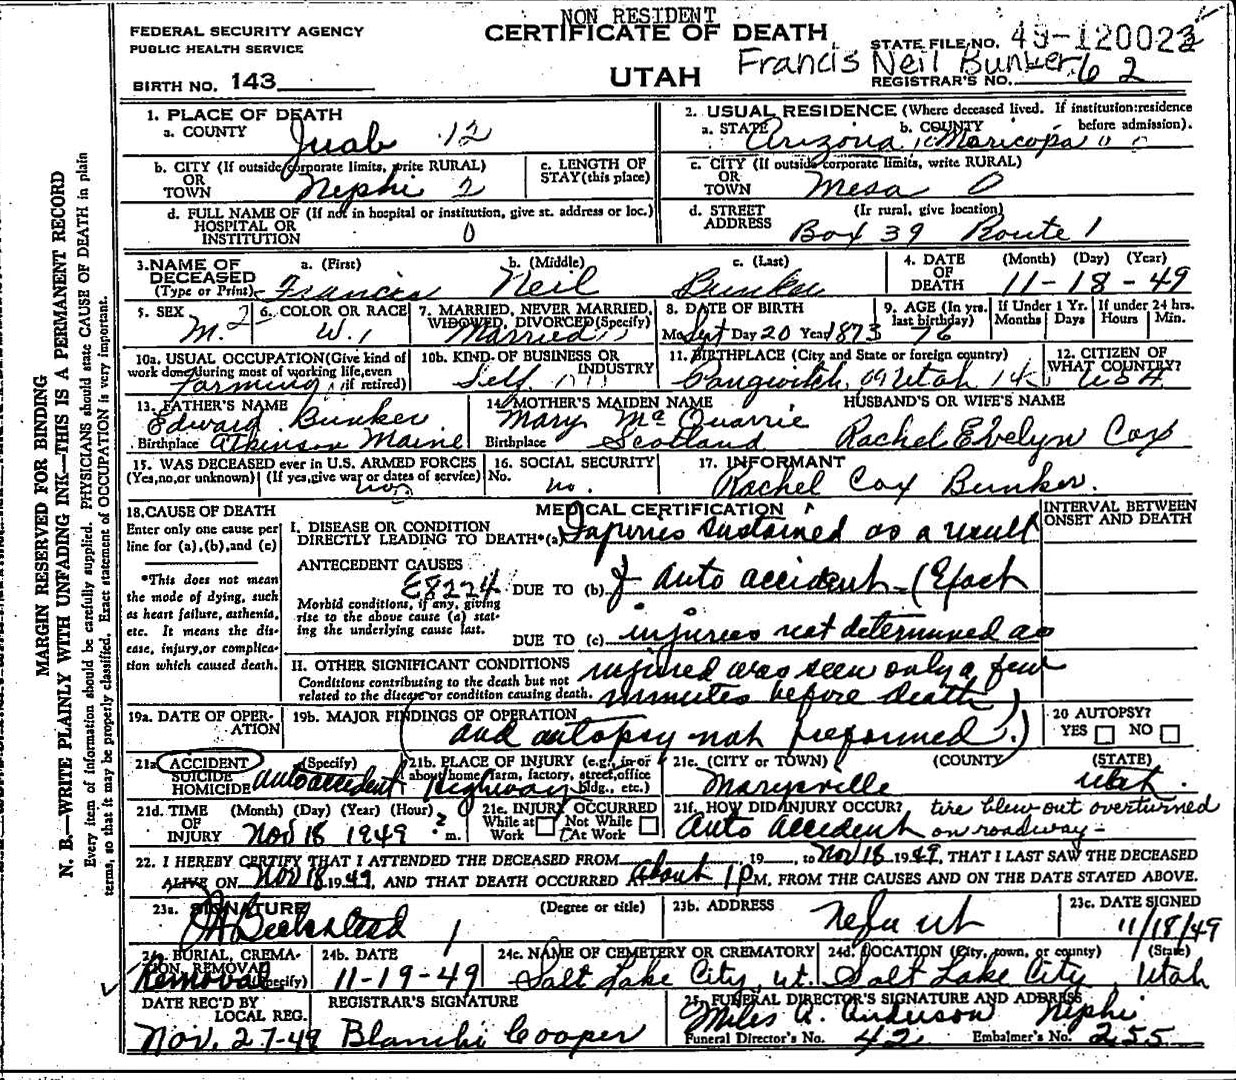 NON RESIDENT
FEDERAL SECURITY AGENCY
PUBLIC HEALTH SERVICE
CERTIFICATE OF DEATH
STATE FILE NO. 49-120022
BIRTH NO. 143
UTAH
Francis Neil Bunker
REGISTRAR'S NO. 62
1. PLACE OF DEATH
a. COUNTY Juab 12
2. USUAL RESIDENCE (Where deceased lived. If institution: residence before admission).
a. STATE Arizona b. COUNTY Maricopa
b. CITY (If outside corporate limits, write RURAL) OR TOWN Nephi 2
c. LENGTH OF STAY (this place)
c. CITY (If outside corporate limits, write RURAL) OR TOWN Mesa 0
d. FULL NAME OF (If not in hospital or institution, give st. address or loc.) HOSPITAL OR INSTITUTION 0
d. STREET ADDRESS (If rural, give location) Box 39 Route 1
3. NAME OF DECEASED (Type or Print) a. (First) Francis b. (Middle) Neil c. (Last) Bunker
4. DATE OF DEATH (Month) (Day) (Year) 11-18-49
5. SEX M. 2
6. COLOR OR RACE W. 1
7. MARRIED, NEVER MARRIED, WIDOWED, DIVORCED (Specify) Married
8. DATE OF BIRTH Mo Sept Day 20 Year 1873
9. AGE (In yrs. last birthday) 76
If Under 1 Yr. Months Days
If under 24 hrs. Hours Min.
10a. USUAL OCCUPATION (Give kind of work done during most of working life, even if retired) Farming
10b. KIND OF BUSINESS OR INDUSTRY Self
11. BIRTHPLACE (City and State or foreign country) Panguitch, 09 Utah
12. CITIZEN OF WHAT COUNTRY? USA
13. FATHER'S NAME Edward Bunker
Birthplace Atkinson Maine
14. MOTHER'S MAIDEN NAME Mary Mc Quarrie
Birthplace Scotland
HUSBAND'S OR WIFE'S NAME
Rachel Evelyn Cox
15. WAS DECEASED ever in U.S. ARMED FORCES (Yes, no, or unknown) (If yes, give war or dates of service) no
16. SOCIAL SECURITY No. no.
17. INFORMANT Rachel Cox Bunker.
18. CAUSE OF DEATH
Enter only one cause per line for (a), (b), and (c)
*This does not mean the mode of dying, such as heart failure, asthenia, etc. It means the disease, injury, or complication which caused death.
MEDICAL CERTIFICATION
INTERVAL BETWEEN ONSET AND DEATH
I. DISEASE OR CONDITION DIRECTLY LEADING TO DEATH* (a) Injuries sustained as a result
ANTECEDENT CAUSES E8224
Morbid conditions, if any, giving rise to the above cause (a) stating the underlying cause last.
DUE TO (b) of auto accident - (Exact
DUE TO (c) injuries not determined as
II. OTHER SIGNIFICANT CONDITIONS
Conditions contributing to the death but not related to the disease or condition causing death.
injured was seen only a few
minutes before death
19a. DATE OF OPERATION
19b. MAJOR FINDINGS OF OPERATION
(and autopsy not preformed.)
20 AUTOPSY?
YES NO
21a. ACCIDENT SUICIDE HOMICIDE (Specify) auto accident
21b. PLACE OF INJURY (e.g., in or about home, farm, factory, street, office bldg., etc.) Highway
21c. (CITY OR TOWN) (COUNTY) (STATE)
Marysville Utah
21d. TIME OF INJURY (Month) (Day) (Year) (Hour) Nov 18 1949 ? m.
21e. INJURY OCCURRED
While at Work Not While At Work
21f. HOW DID INJURY OCCUR? tire blew out overturned
Auto Accident on roadway -
22. I HEREBY CERTIFY THAT I ATTENDED THE DECEASED FROM , 19 , to Nov 18 1949, THAT I LAST SAW THE DECEASED
ALIVE ON Nov 18 1949, AND THAT DEATH OCCURRED AT About 1 P M. FROM THE CAUSES AND ON THE DATE STATED ABOVE.
23a. SIGNATURE (Degree or title)
23b. ADDRESS
23c. DATE SIGNED 11/18/49
24a. BURIAL, CREMATION, REMOVAL (Specify) Removal
24b. DATE 11-19-49
24c. NAME OF CEMETERY OR CREMATORY Salt Lake City, Ut.
24d. LOCATION (City, town, or county) (State) Salt Lake City, Utah
DATE REC'D BY LOCAL REG. Nov. 27-49
REGISTRAR'S SIGNATURE Blanche Cooper
25. FUNERAL DIRECTOR'S SIGNATURE AND ADDRESS
Miles A. Anderson Nephi
Funeral Director's No. 42 Embalmer's No. 255
MARGIN RESERVED FOR BINDING
N. B.—WRITE PLAINLY WITH UNFADING INK—THIS IS A PERMANENT RECORD
Every item of information should be carefully supplied. PHYSICIANS should state CAUSE OF DEATH in plain
terms, so that it may be properly classified. Exact statement of OCCUPATION is very important.